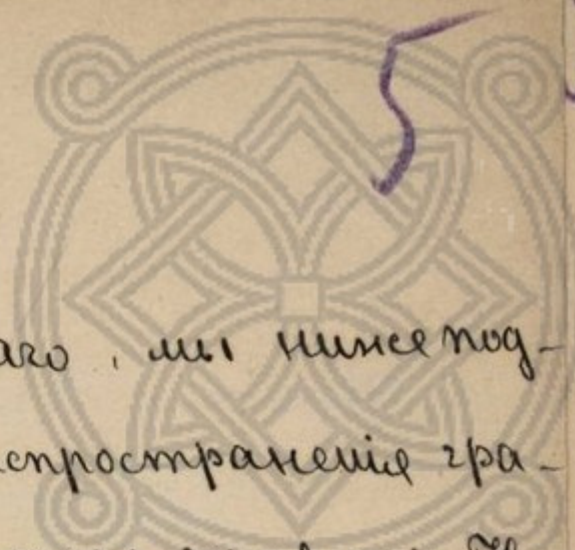 5
аго, мы нижепод-
спространенія гра-